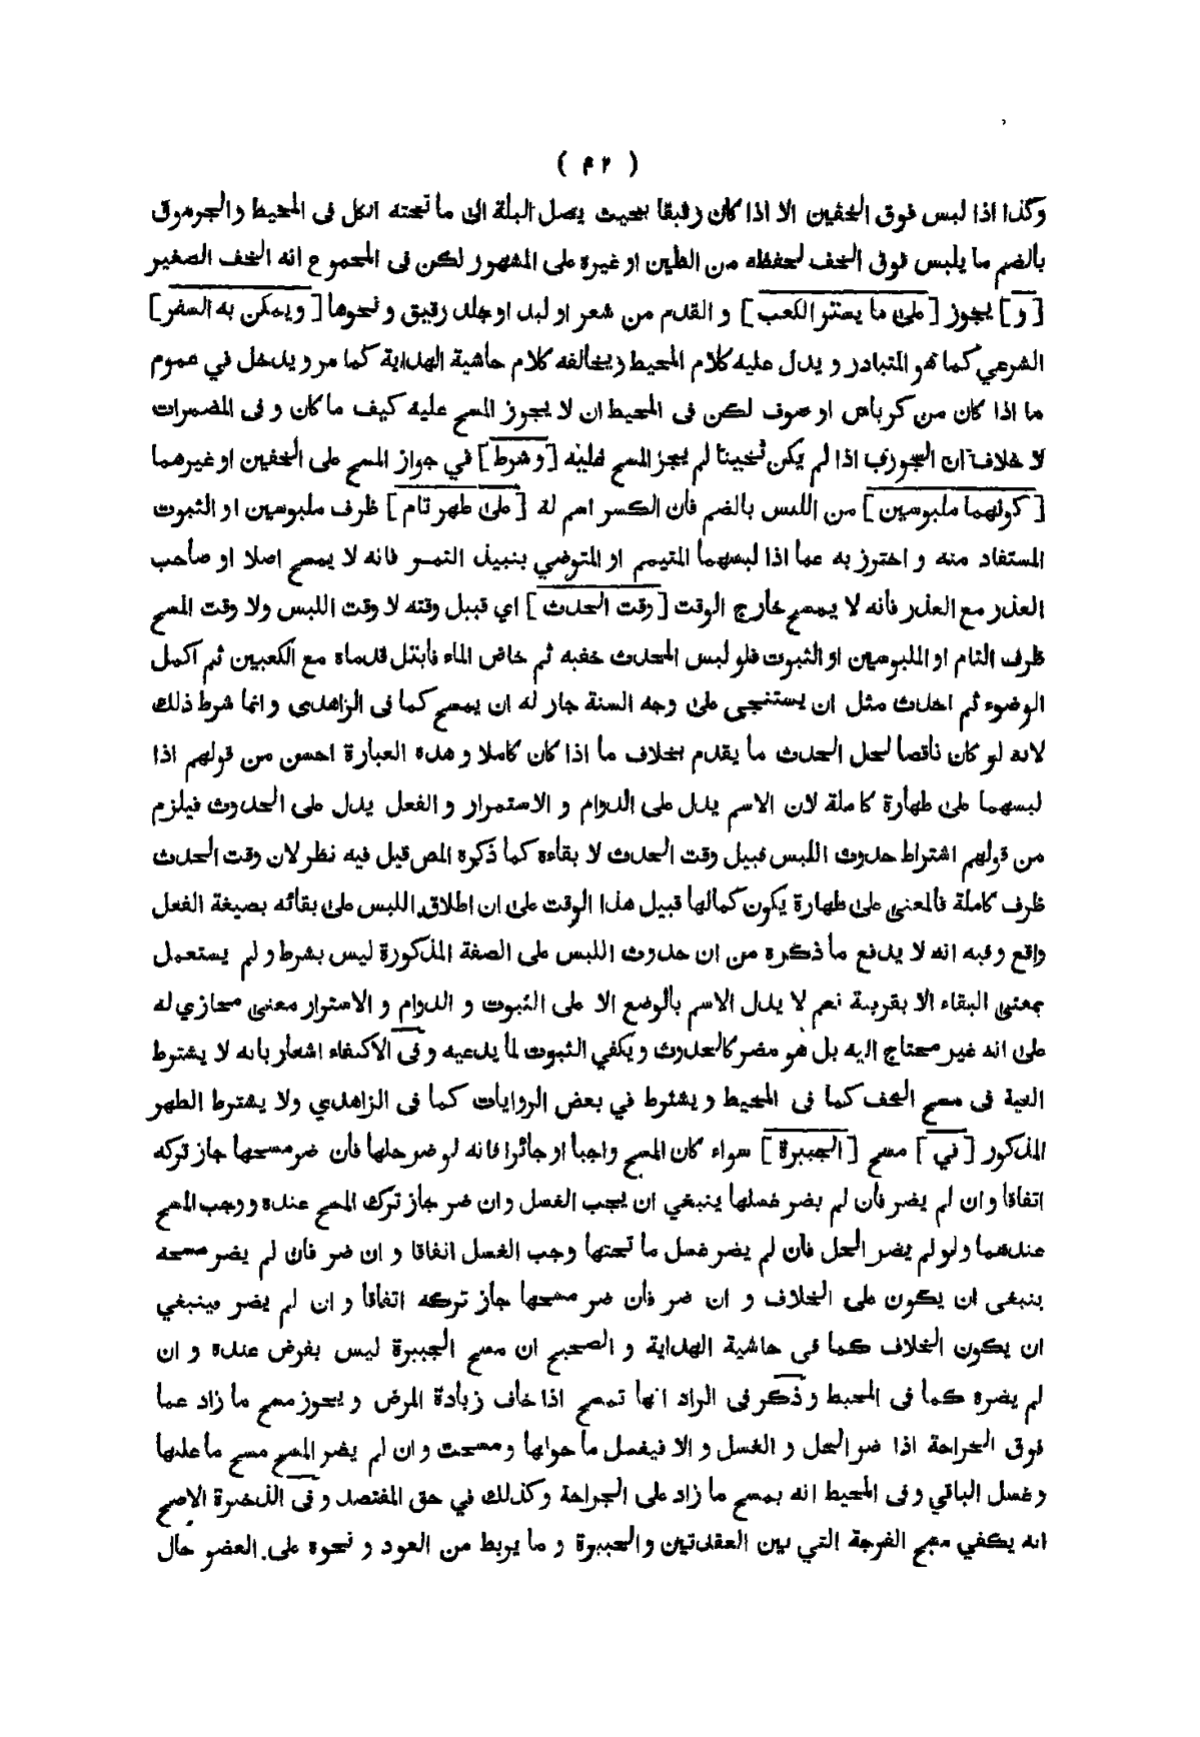 ( ٤٢ )
وكذا اذا لبس فوق الخفين الا اذا كان رقيقا بحيث يصل البلة الى ما تحته الكل فى المحيط والجرموق
بالضم ما يلبس فوق الخف لحفظه من الطين او غيره على المشهور لكن فى المجموع انه الخف الصغير
[و] يجوز [على ما يستر الكعب] و القدم من شعر او لبد او جلد رقيق و نحوها [ويمكن به السفر]
الشرعي كما هو المتبادر و يدل عليه كلام المحيط ويخالفه كلام حاشية الهداية كما مر و يدخل في عموم
ما اذا كان من كرباس او صوف لكن فى المحيط ان لا يجوز المسح عليه كيف ما كان و فى المضمرات
لا خلاف ان الجورب اذا لم يكن ثخينا لم يجز المسح عليه [وشرط] في جواز المسح على الخفين او غيرهما
[كونهما ملبوسين] من اللبس بالضم فان الكسر اسم له [على طهر تام] ظرف ملبوسين او الثبوت
المستفاد منه و احترز به عما اذا لبسهما المتيمم او المتوضي بنبيذ التمر فانه لا يمسح اصلا او صاحب
العذر مع العذر فانه لا يمسح خارج الوقت [وقت الحدث] اي قبيل وقته لا وقت اللبس ولا وقت المسح
ظرف التام او الملبوسين او الثبوت فلو لبس المحدث خفيه ثم خاض الماء فابتل قدماه مع الكعبين ثم اكمل
الوضوء ثم احدث مثل ان يستنجى على وجه السنة جاز له ان يمسح كما فى الزاهدى و انما شرط ذلك
لانه لو كان ناقصا لحل الحدث ما يقدم بخلاف ما اذا كان كاملا و هذه العبارة احسن من قولهم اذا
لبسهما على طهارة كاملة لان الاسم يدل على الدوام و الاستمرار و الفعل يدل على الحدوث فيلزم
من قولهم اشتراط حدوث اللبس قبيل وقت الحدث لا بقاءه كما ذكره المص قيل فيه نظر لان وقت الحدث
ظرف كاملة فالمعنى على طهارة يكون كمالها قبيل هذا الوقت على ان اطلاق اللبس على بقائه بصيغة الفعل
واقع وفيه انه لا يدفع ما ذكره من ان حدوث اللبس على الصفة المذكورة ليس بشرط و لم يستعمل
بمعنى البقاء الا بقرينة نعم لا يدل الاسم بالوضع الا على الثبوت و الدوام و الاستمرار معنى مجازي له
على انه غير محتاج اليه بل هو مضر كالحدوث و يكفي الثبوت لما يدعيه و فى الاكتفاء اشعار بانه لا يشترط
النية فى مسح الخف كما فى المحيط و يشترط في بعض الروايات كما فى الزاهدي ولا يشترط الطهر
المذكور [في] مسح [الجبيرة] سواء كان المسح واجبا او جائزا فانه لو ضر حلها فان ضر مسحها جاز تركه
اتفاقا و ان لم يضر فان لم يضر غسلها ينبغي ان يجب الغسل و ان ضر جاز ترك المسح عنده و وجب المسح
عندهما ولو لم يضر الحل فان لم يضر غسل ما تحتها وجب الغسل اتفاقا و ان ضر فان لم يضر مسحه
ينبغى ان يكون على الخلاف و ان ضر فان ضر مسحها جاز تركه اتفاقا و ان لم يضر فينبغي
ان يكون الخلاف كما فى حاشية الهداية و الصحيح ان مسح الجبيرة ليس بفرض عنده و ان
لم يضره كما فى المحيط و ذكر فى الزاد انها تمسح اذا خاف زيادة المرض و يجوز مسح ما زاد عما
فوق الجراحة اذا ضر الحل و الغسل و الا فيغسل ما حولها و مسحت و ان لم يضر المسح مسح ما عليها
و غسل الباقي و فى المحيط انه يمسح ما زاد على الجراحة وكذلك في حق المفتصد و فى الذخيرة الاصح
انه يكفي مسح الفرجة التي بين العقدتين والجبيرة و ما يربط من العود و نحوه على العضو حال